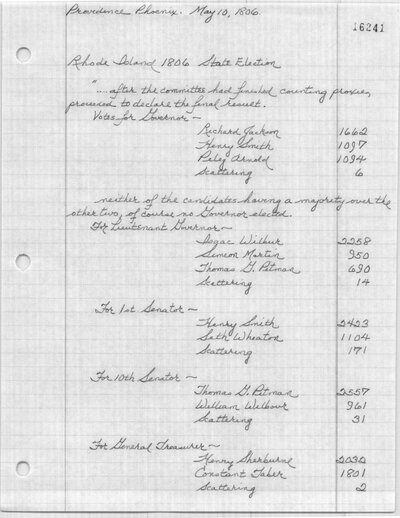 Providence Phoenix. May 10, 1806.
16241
Rhode Island 1806 State Election
"....after the committee had finished counting proxies,
proceeded to declare the final result.
Votes for Governor ~
Richard Jackson 1662
Henry Smith 1097
Peleg Arnold 1094
Scattering 6
neither of the candidates having a majority over the
other two, of course no Governor elected.
For Lieutenant Governor ~
Isaac Wilbur 2258
Simeon Martin 950
Thomas G. Pitman 690
Scattering 14
For 1st Senator ~
Henry Smith 2423
Seth Wheaton 1104
Scattering 171
For 10th Senator ~
Thomas G. Pitman 2557
William Welbour 961
Scattering 31
For General Treasurer ~
Henry Sherburne 2032
Constant Taber 1801
Scattering 2